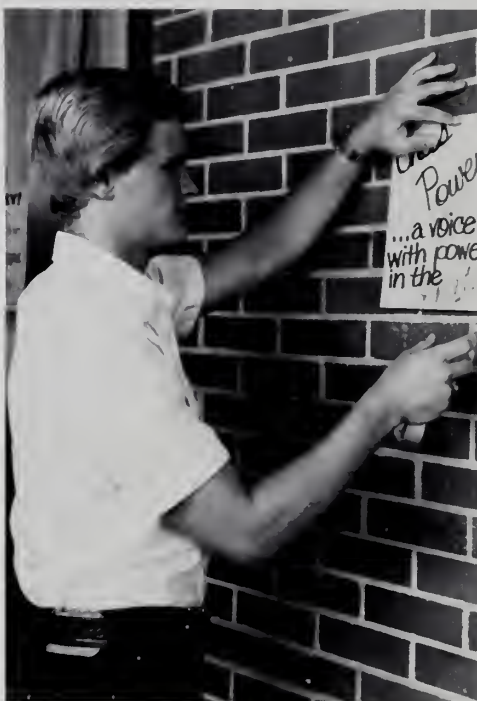 Power
...a voice
with powe
in the